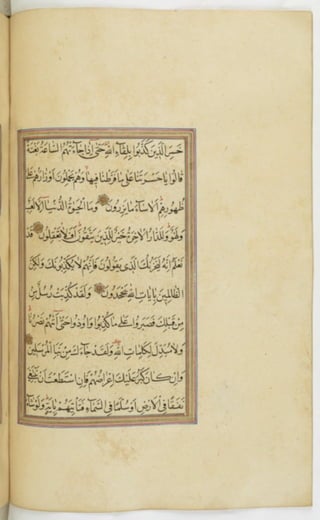 خَسِرَ الَّذِينَ كَذَّبُوا بِلِقَاءِ اللَّهِ حَتَّى إِذَا جَاءَتْهُمُ السَّاعَةُ بَغْتَةً
قَالُوا يَا حَسْرَتَنَا عَلَى مَا فَرَّطْنَا فِيهَا وَهُمْ يَحْمِلُونَ أَوْزَارَهُمْ عَلَى
ظُهُورِهِمْ أَلَا سَاءَ مَا يَزِرُونَ وَمَا الْحَيٰوةُ الدُّنْيَا إِلَّا لَعِبٌ
وَلَهْوٌ وَلَلدَّارُ الْآخِرَةُ خَيْرٌ لِلَّذِينَ يَتَّقُونَ أَفَلَا تَعْقِلُونَ قَدْ
نَعْلَمُ إِنَّهُ لَيَحْزُنُكَ الَّذِي يَقُولُونَ فَإِنَّهُمْ لَا يُكَذِّبُونَكَ وَلَكِنَّ
الظَّالِمِينَ بِآيَاتِ اللَّهِ يَجْحَدُونَ وَلَقَدْ كُذِّبَتْ رُسُلٌ مِنْ
مِنْ قَبْلِكَ فَصَبَرُوا عَلَى مَا كُذِّبُوا وَأُوذُوا حَتَّى أَتٰهُمْ نَصْرُنَا
وَلَا مُبَدِّلَ لِكَلِمَاتِ اللَّهِ وَلَقَدْ جَاءَكَ مِنْ نَبَإِ الْمُرْسَلِينَ
وَإِنْ كَانَ كَبُرَ عَلَيْكَ إِعْرَاضُهُمْ فَإِنِ اسْتَطَعْتَ أَنْ تَبْتَغِيَ
نَفَقًا فِي الْأَرْضِ أَوْ سُلَّمًا فِي السَّمَاءِ فَتَأْتِيَهُمْ بِآيَةٍ وَلَوْ شَاءَ